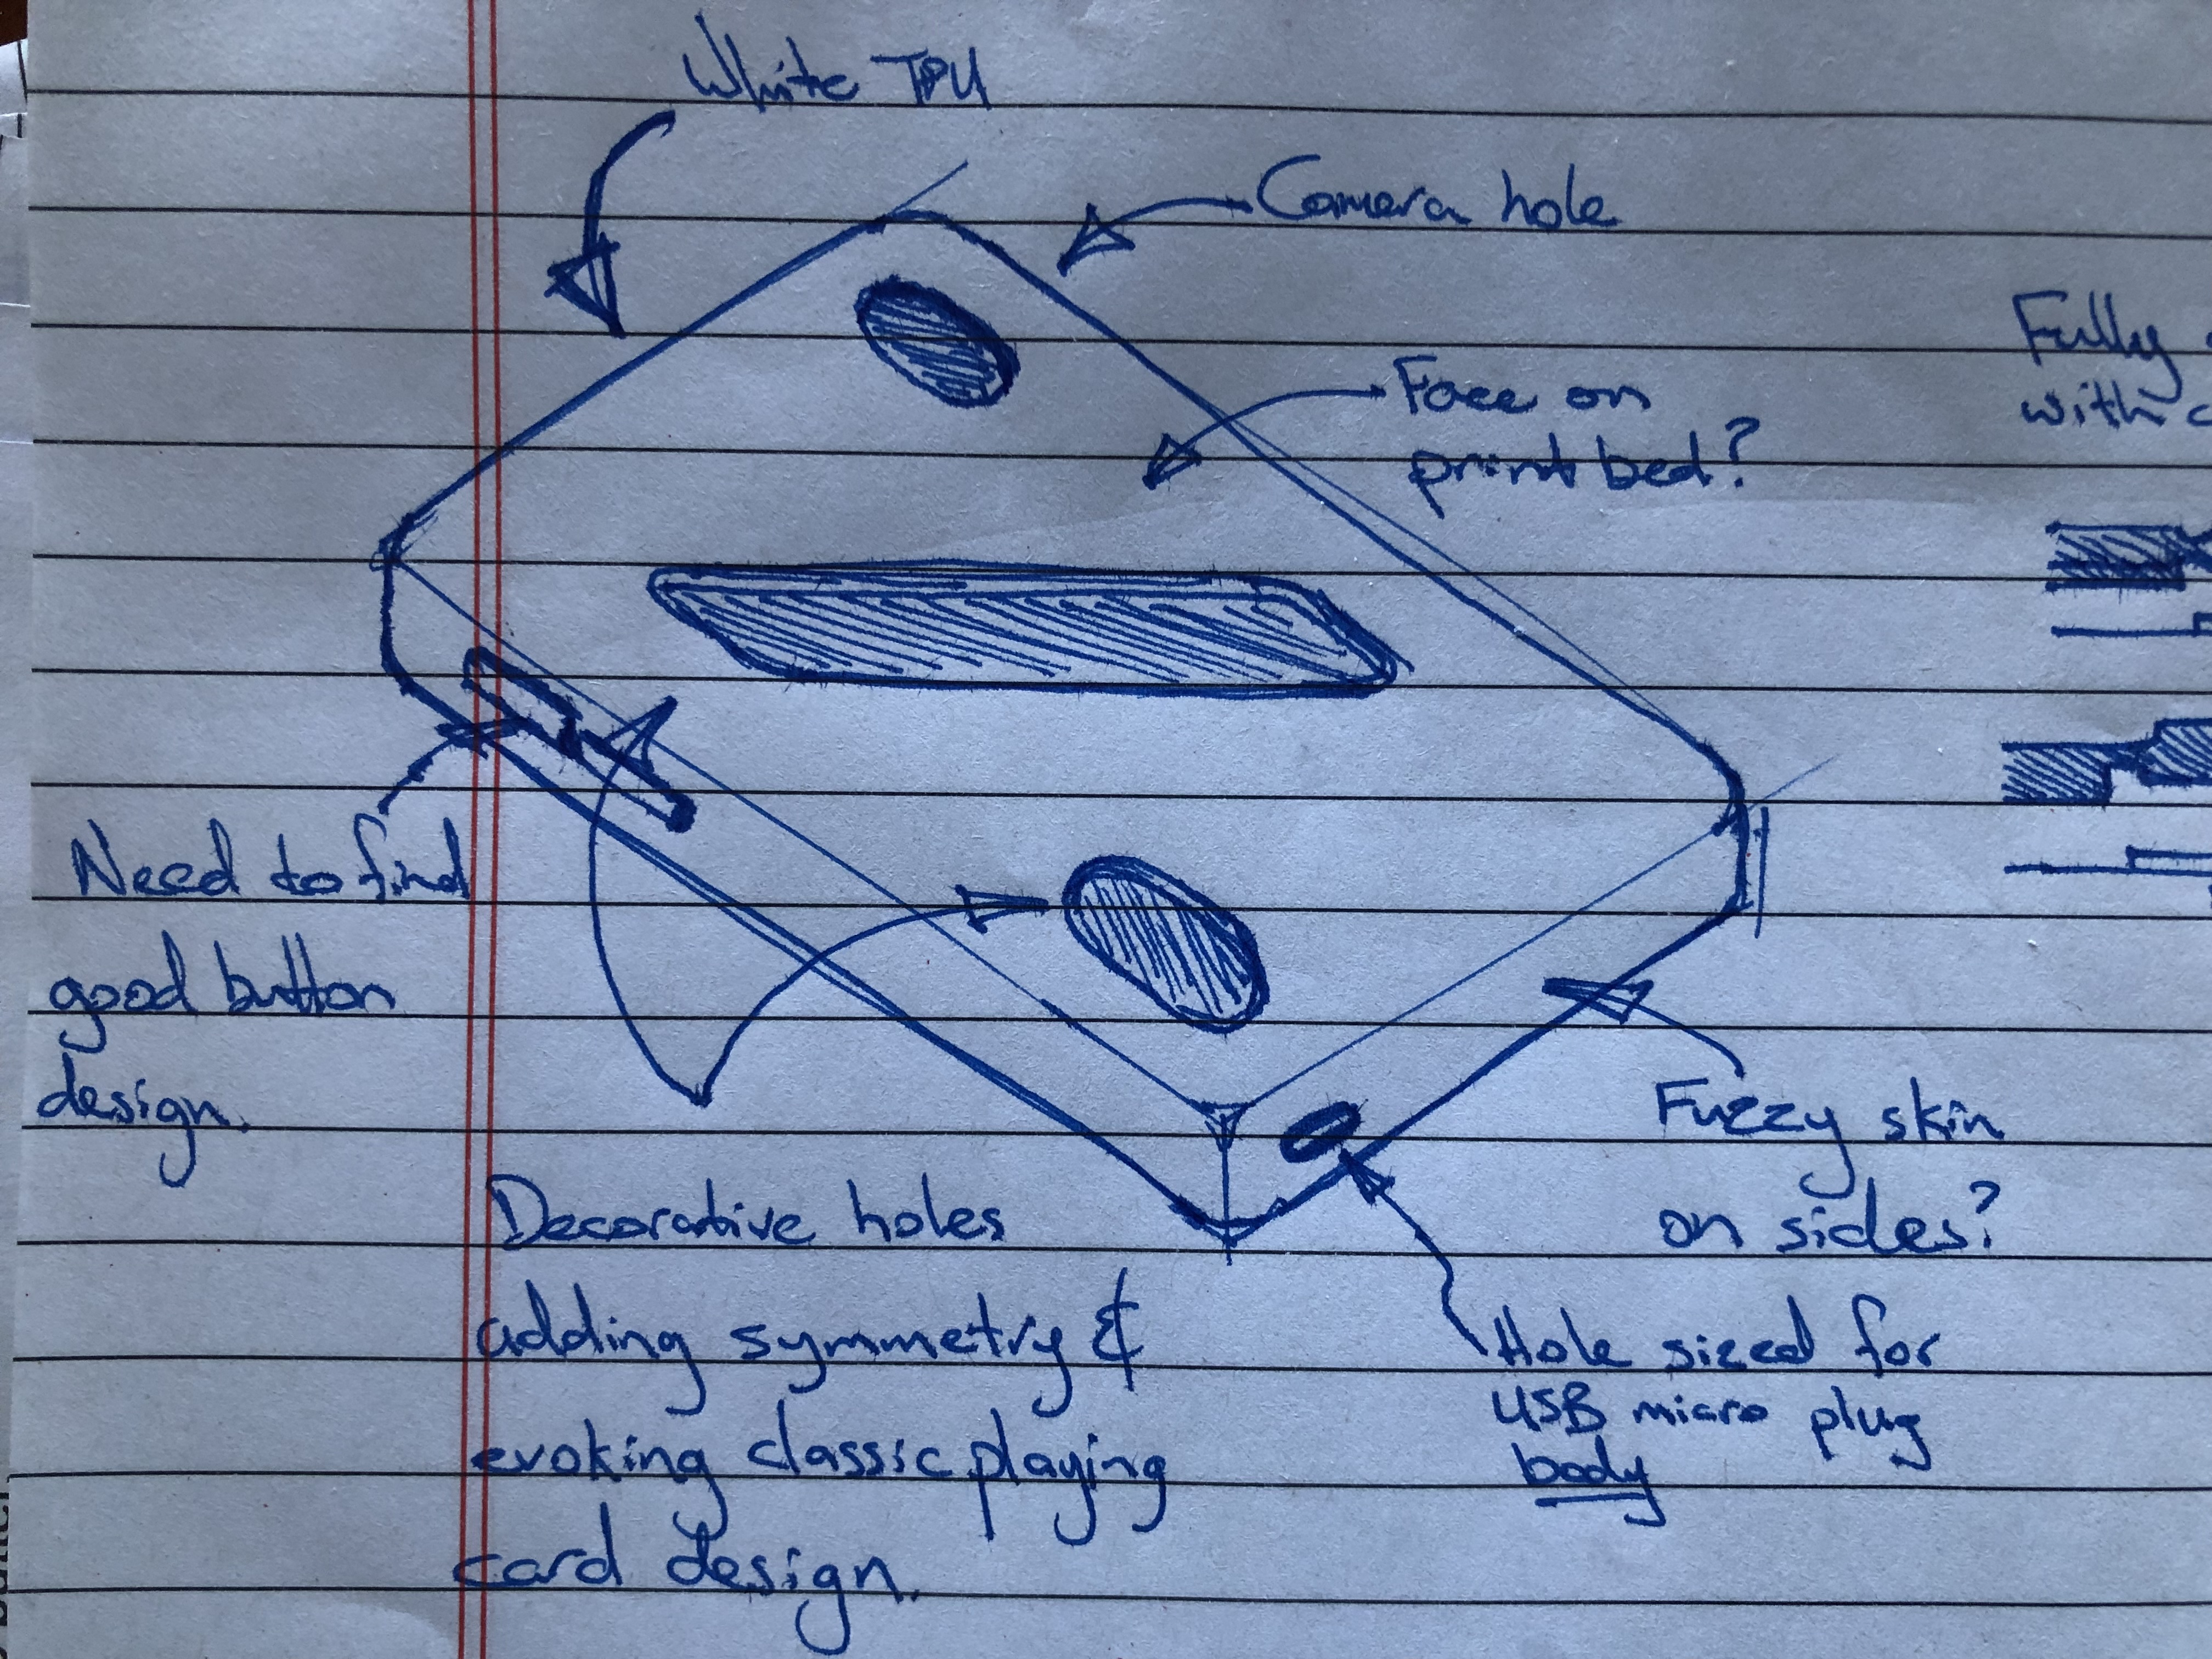 White TPU
Camera hole
Face on
print bed?
Fully
with
Need to find
good button
design.
Decorative holes
adding symmetry &
evoking classic playing
card design.
Fuzzy skin
on sides?
Hole sized for
USB micro plug
body